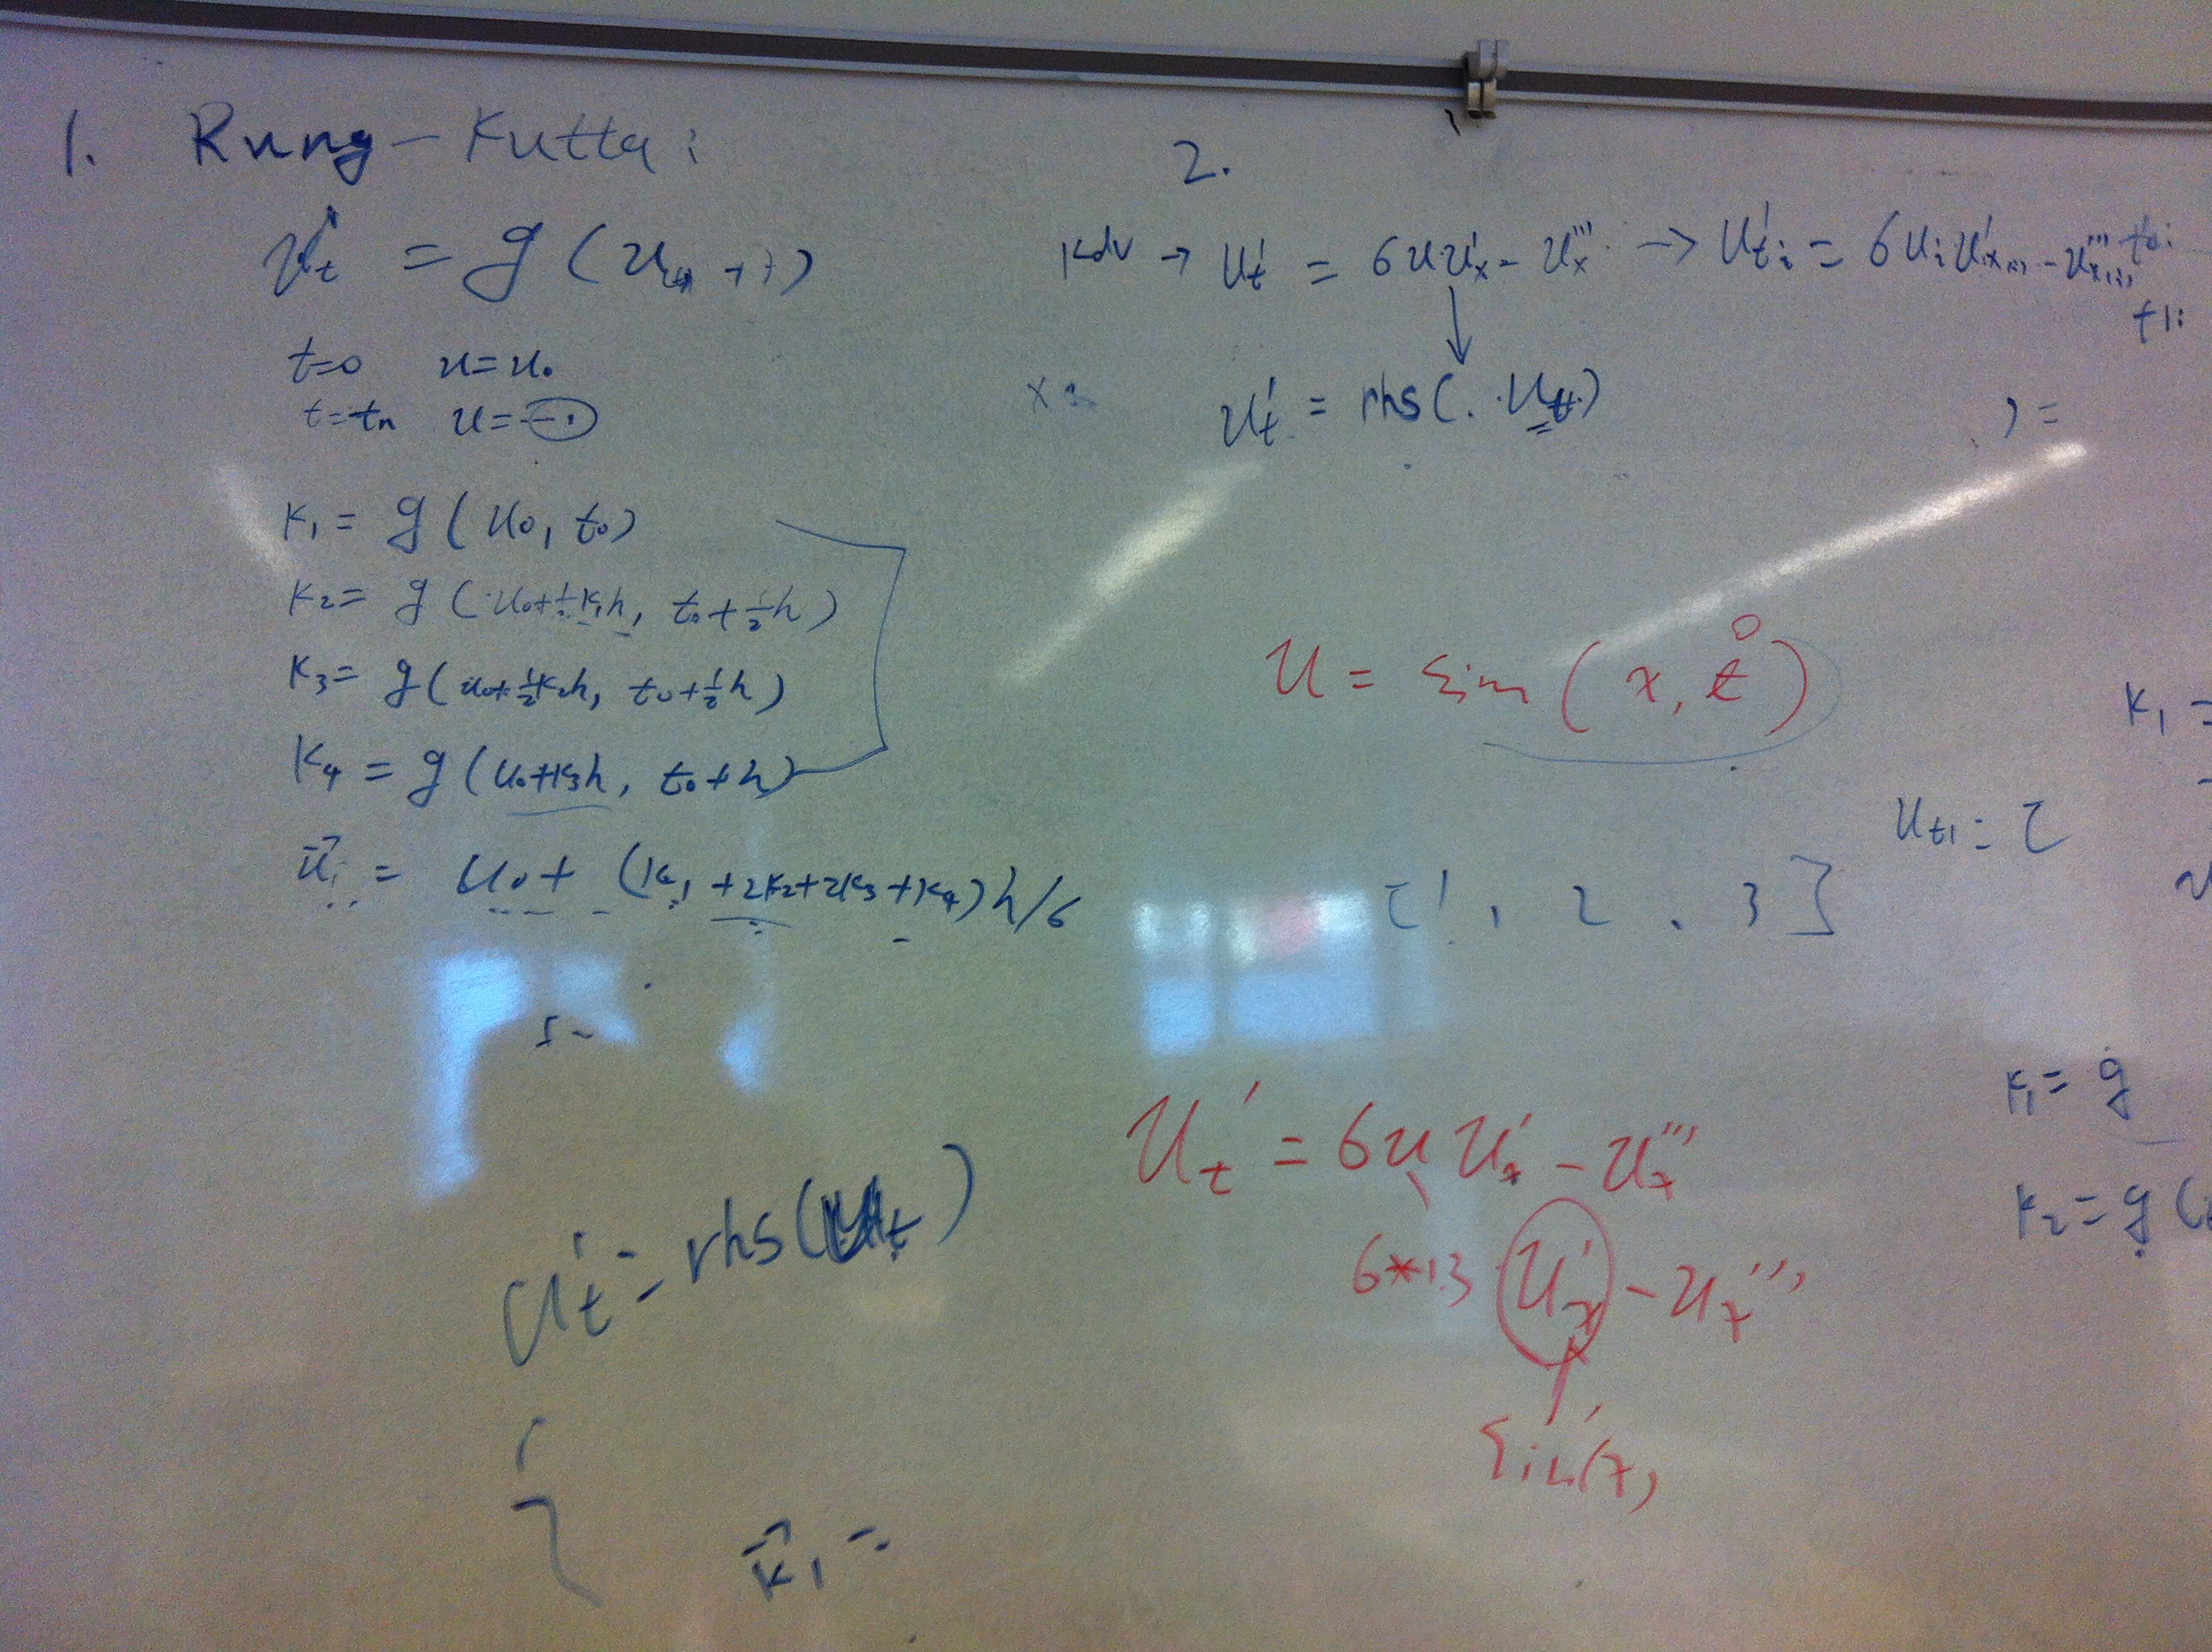 1. Rung-Kutta:
u't = g(u, t)
t=0 u=u0
t=tn u=
K1 = g(u0, t0)
K2 = g(u0+½K1h, t0+½h)
K3 = g(u0+½K2h, t0+½h)
K4 = g(u0+K3h, t0+h)
u⃗1 = u0+ (K1+2K2+2K3+K4)h/6
u't = rhs(ut)
K⃗1 =
2.
Kdv → u't = 6uu'x - u'''x → u't i = 6uiu'x(i) - u'''x(i)
t0:
t1:
u't = rhs(. ut)
) =
u = sin(x, t) 0
K1 =
ut1 = [
[1, 2, 3]
K1 = g
K2 = g(
u't = 6uu'x - u'''x
6*13 u'x - u'''x
sin'(x)